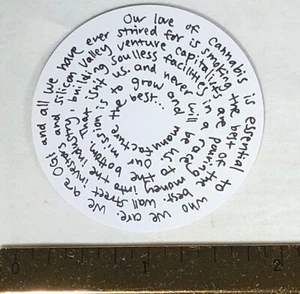 Our love of cannabis is essential to who we are. We are OGs and all we have ever strived for is smoking the best of the best. Wall street investors and silicon valley venture capitalists are pouring money into the industry, building soulless facilities in a race to the bottom. That isn't us. and never will be. Our mission is to grow and manufacture the best...
0 1 2